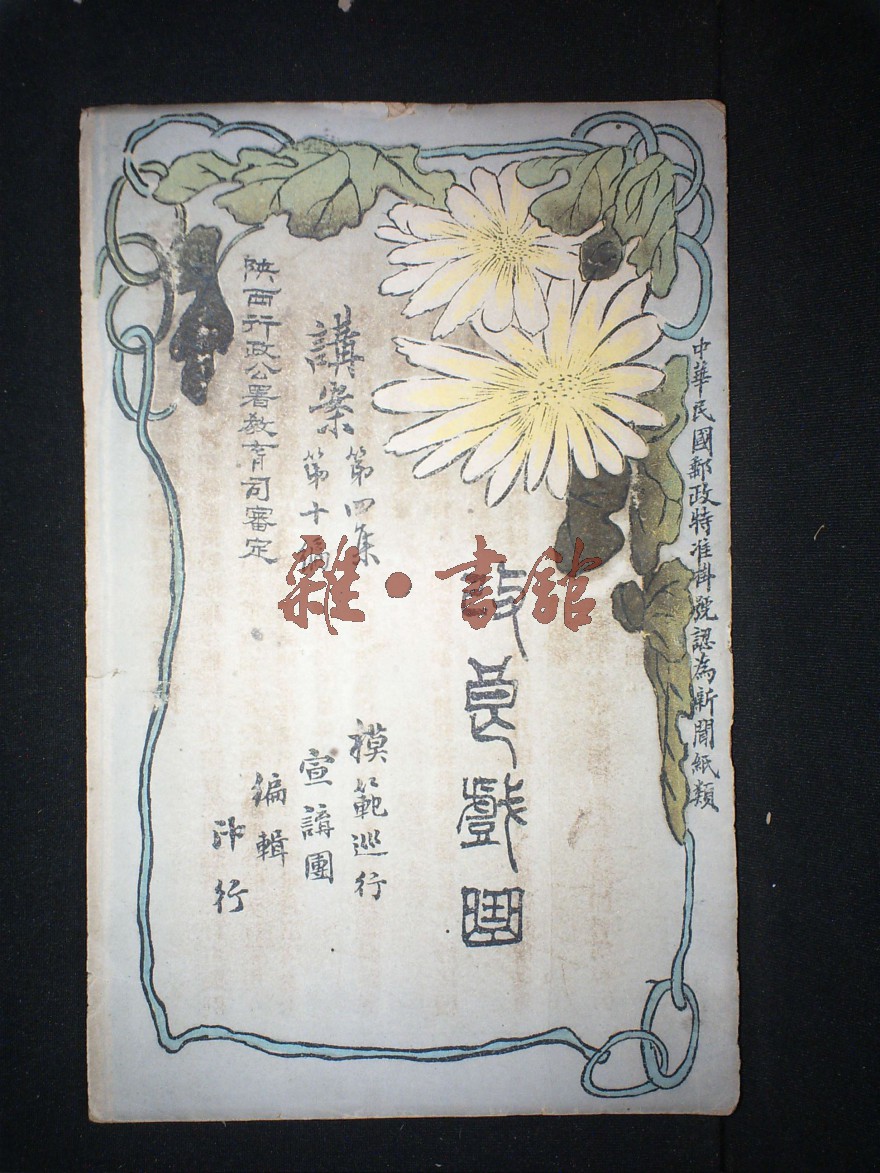 中華民國郵政特准掛號認為新聞紙類
改良戲
講案
第四集
第十編
模範巡行
宣講團
編輯
印行
陝西行政公署教育司審定
雜·書館